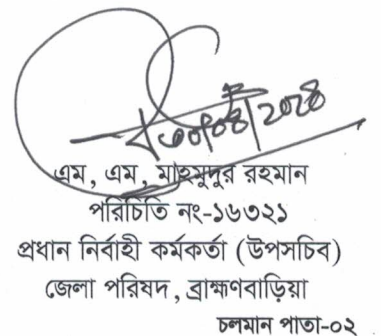 এম, এম, মাহমুদুর রহমান
পরিচিতি নং-১৬৩২১
প্রধান নির্বাহী কর্মকর্তা (উপসচিব)
জেলা পরিষদ, ব্রাহ্মণবাড়িয়া
চলমান পাতা-০২